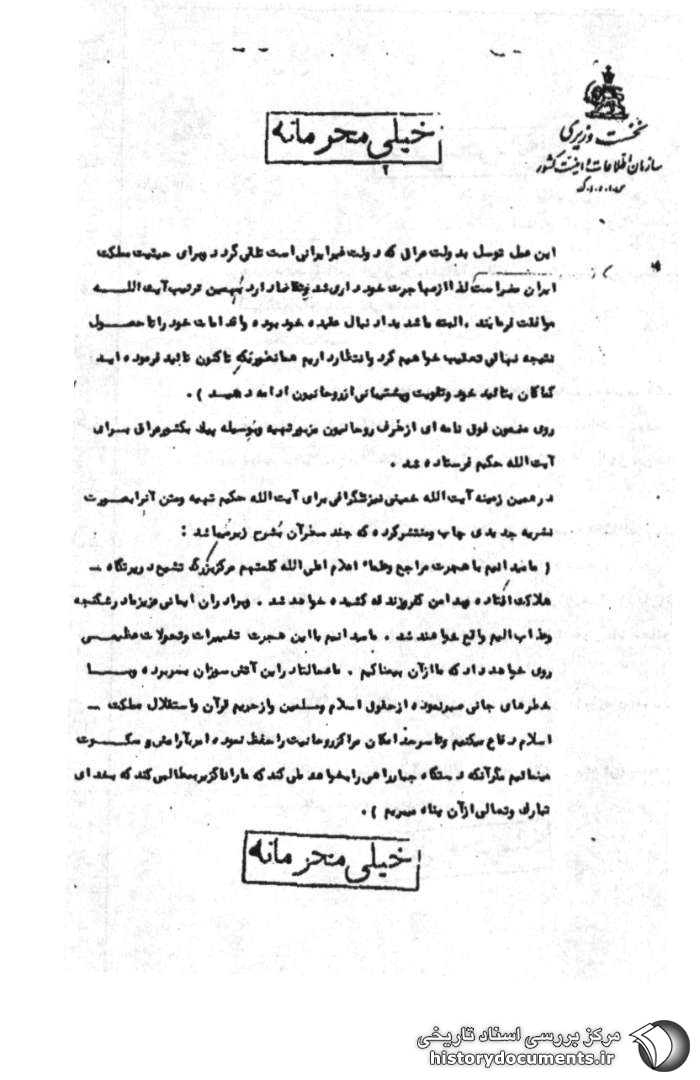 خیلی محرمانه
۲
نخست وزیری
سازمان اطلاعات و امنیت کشور
س.ا.و.ا.ک
این عمل توسل بدولت عراق که دولت غیر ایرانی است تلقی گردد و برای حیثیت مملکت
ایران مضر است لذا از مهاجرت خودداری شد و تقاضا دارد بهمین ترتیب آیت اللـه
موافقت فرمایند . البته ماشدیدا دنبال عقیده خود بوده و اقدامات خود را تا حصـول
نتیجه نهائی تعقیب خواهیم کرد و انتظار داریم همانطوریکه تاکنون تائید فرموده ایـد
کماکان بتائید خود و تقویت و پشتیبانی از روحانیون ادامه دهیـد ) .
روی مضمون فوق نامه ای از طرف روحانیون مزبور تهیه و بوسیله پیک بکشور عراق بـرای
آیت الله حکیم فرستاده شد .
در همین زمینه آیت الله خمینی نیز تلگرافی برای آیت الله حکیم تهیه و متن آنرا بصـورت
نشریه جدیدی چاپ و منتشر کرده که چند سطر آن بشرح زیر میباشد :
( ما میدانیم با هجرت مراجع و علماء اعلام اعلی الله کلمتهم مرکز بزرگ تشیع در پرتگاه ـ
هلاکت افتاده و بدامن کفر و زندقه کشیده خواهد شد . و برادران ایمانی عزیز ما در شکنجه
و عذاب الیم واقع خواهند شد . ما میدانیم با این هجرت تغییرات و تحولات عظیمـی
روی خواهد داد که ما از آن بیمناکیم . ما عجالتا در این آتش سوزان بسر برده و بـا
خطرهای جانی صبر نموده از حقوق اسلام و مسلمین و از حریم قرآن و استقلال مملکت ـ
اسلام دفاع میکنیم و تا سرحد امکان مراکز روحانیت را حفظ نموده امر بآرامش و سکـوت
مینمائیم مگر آنکه دستگاه جبار راهی را بخواهد طی کند که ما را ناگزیر بمطالبی کند که بخدای
تبارک و تعالی از آن پناه میبریم ) .
خیلی محرمانه
مرکز بررسی اسناد تاریخی
historydocuments.ir